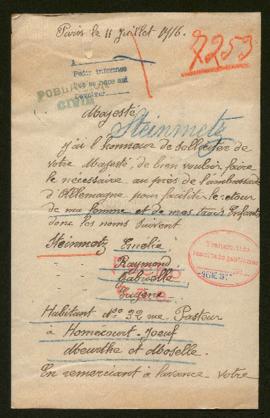 Paris le 11 Juillet 1916.
2253
A
Petir informes
que se nous aut
POBLA
CIVIL
Majesté
Steinmetz
J'ai l'honneur de solliciter de
votre Majesté, de bien vouloir faire
le nécessaire au près de l'ambassade
d'Allemagne pour faciliter le retour
de ma femme et de mes trois Enfants
dont les noms suivent
Steinmetz Emelie
Raymond
Gabrielle
Eugène
Habitant Nº 32 rue Pasteur
à Homécourt-Joeuf
Meurthe et Moselle.
En remerciant à l'avance votre